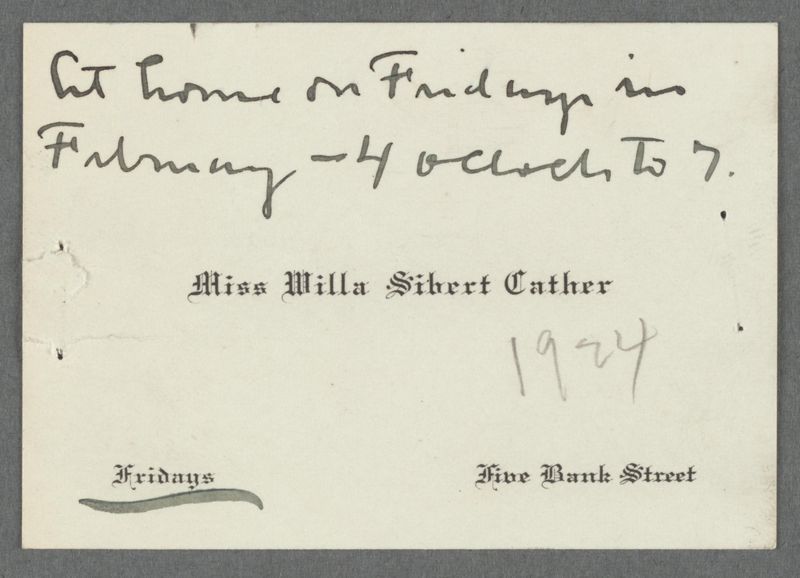 At home on Fridays in
February – 4 oclock to 7.
Miss Willa Sibert Cather
1924
Fridays
Five Bank Street